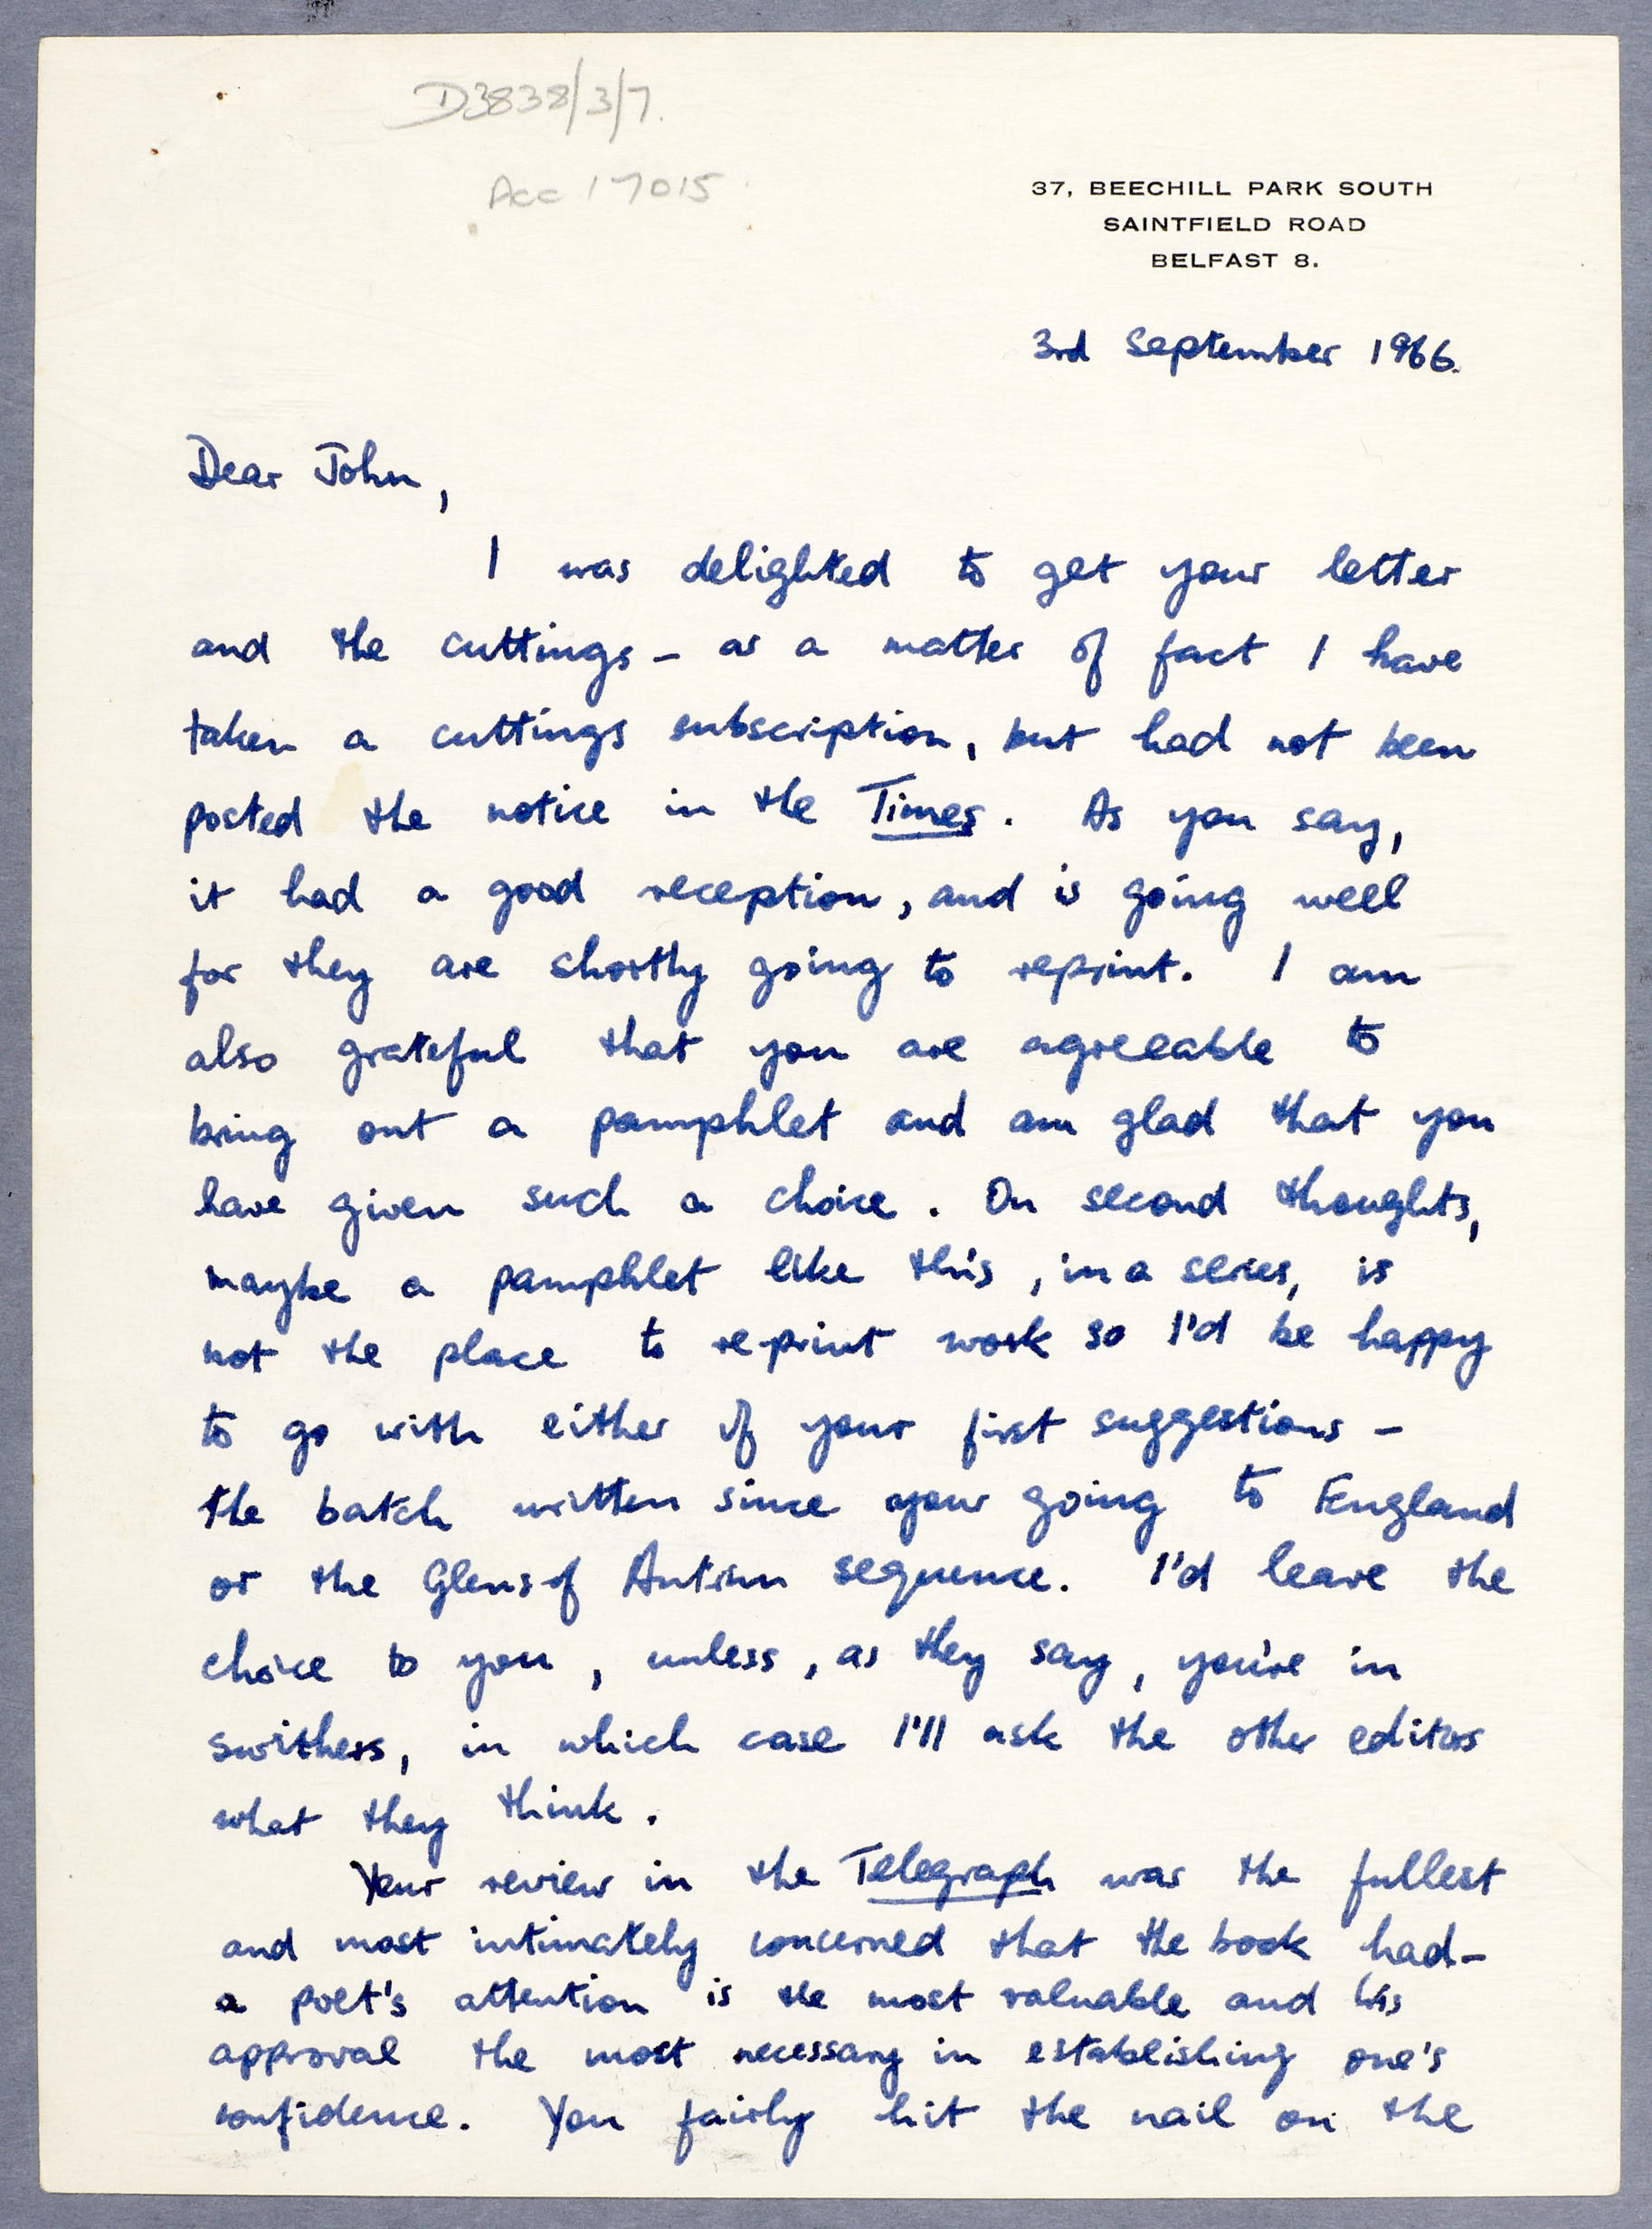 D3838/3/7.
Acc 17015
37, BEECHILL PARK SOUTH
SAINTFIELD ROAD
BELFAST 8.
3rd September 1966.
Dear John,
I was delighted to get your letter
and the cuttings - as a matter of fact I have
taken a cuttings subscription, but had not been
posted the notice in the Times. As you say,
it had a good reception, and is going well
for they are shortly going to reprint. I am
also grateful that you are agreeable to
bring out a pamphlet and am glad that you
have given such a choice. On second thoughts,
maybe a pamphlet like this, in a series, is
not the place to re-print work so I'd be happy
to go with either of your first suggestions -
the batch written since your going to England
or the Glens of Antrim sequence. I'd leave the
choice to you, unless, as they say, you're in
swithers, in which case I'll ask the other editors
what they think.
Your review in the Telegraph was the fullest
and most intimately concerned that the book had -
a poet's attention is the most valuable and his
approval the most necessary in establishing one's
confidence. You fairly hit the nail on the